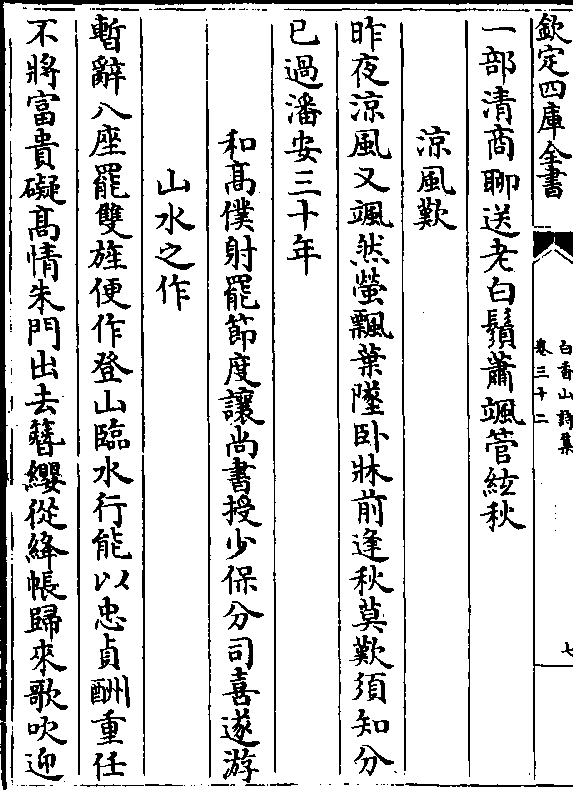 欽定四庫全書
白香山詩集
卷三十二
七
一部清商聊送老白鬚蕭颯管絃秋
涼風歎
昨夜涼風又颯然螢飄葉墜卧牀前逢秋莫歎須知分
已過潘安三十年
和高僕射罷節度讓尚書授少保分司喜遂游
山水之作
暫辭八座罷雙旌便作登山臨水行能以忠貞酬重任
不將富貴礙高情朱門出去簪纓從絳帳歸來歌吹迎